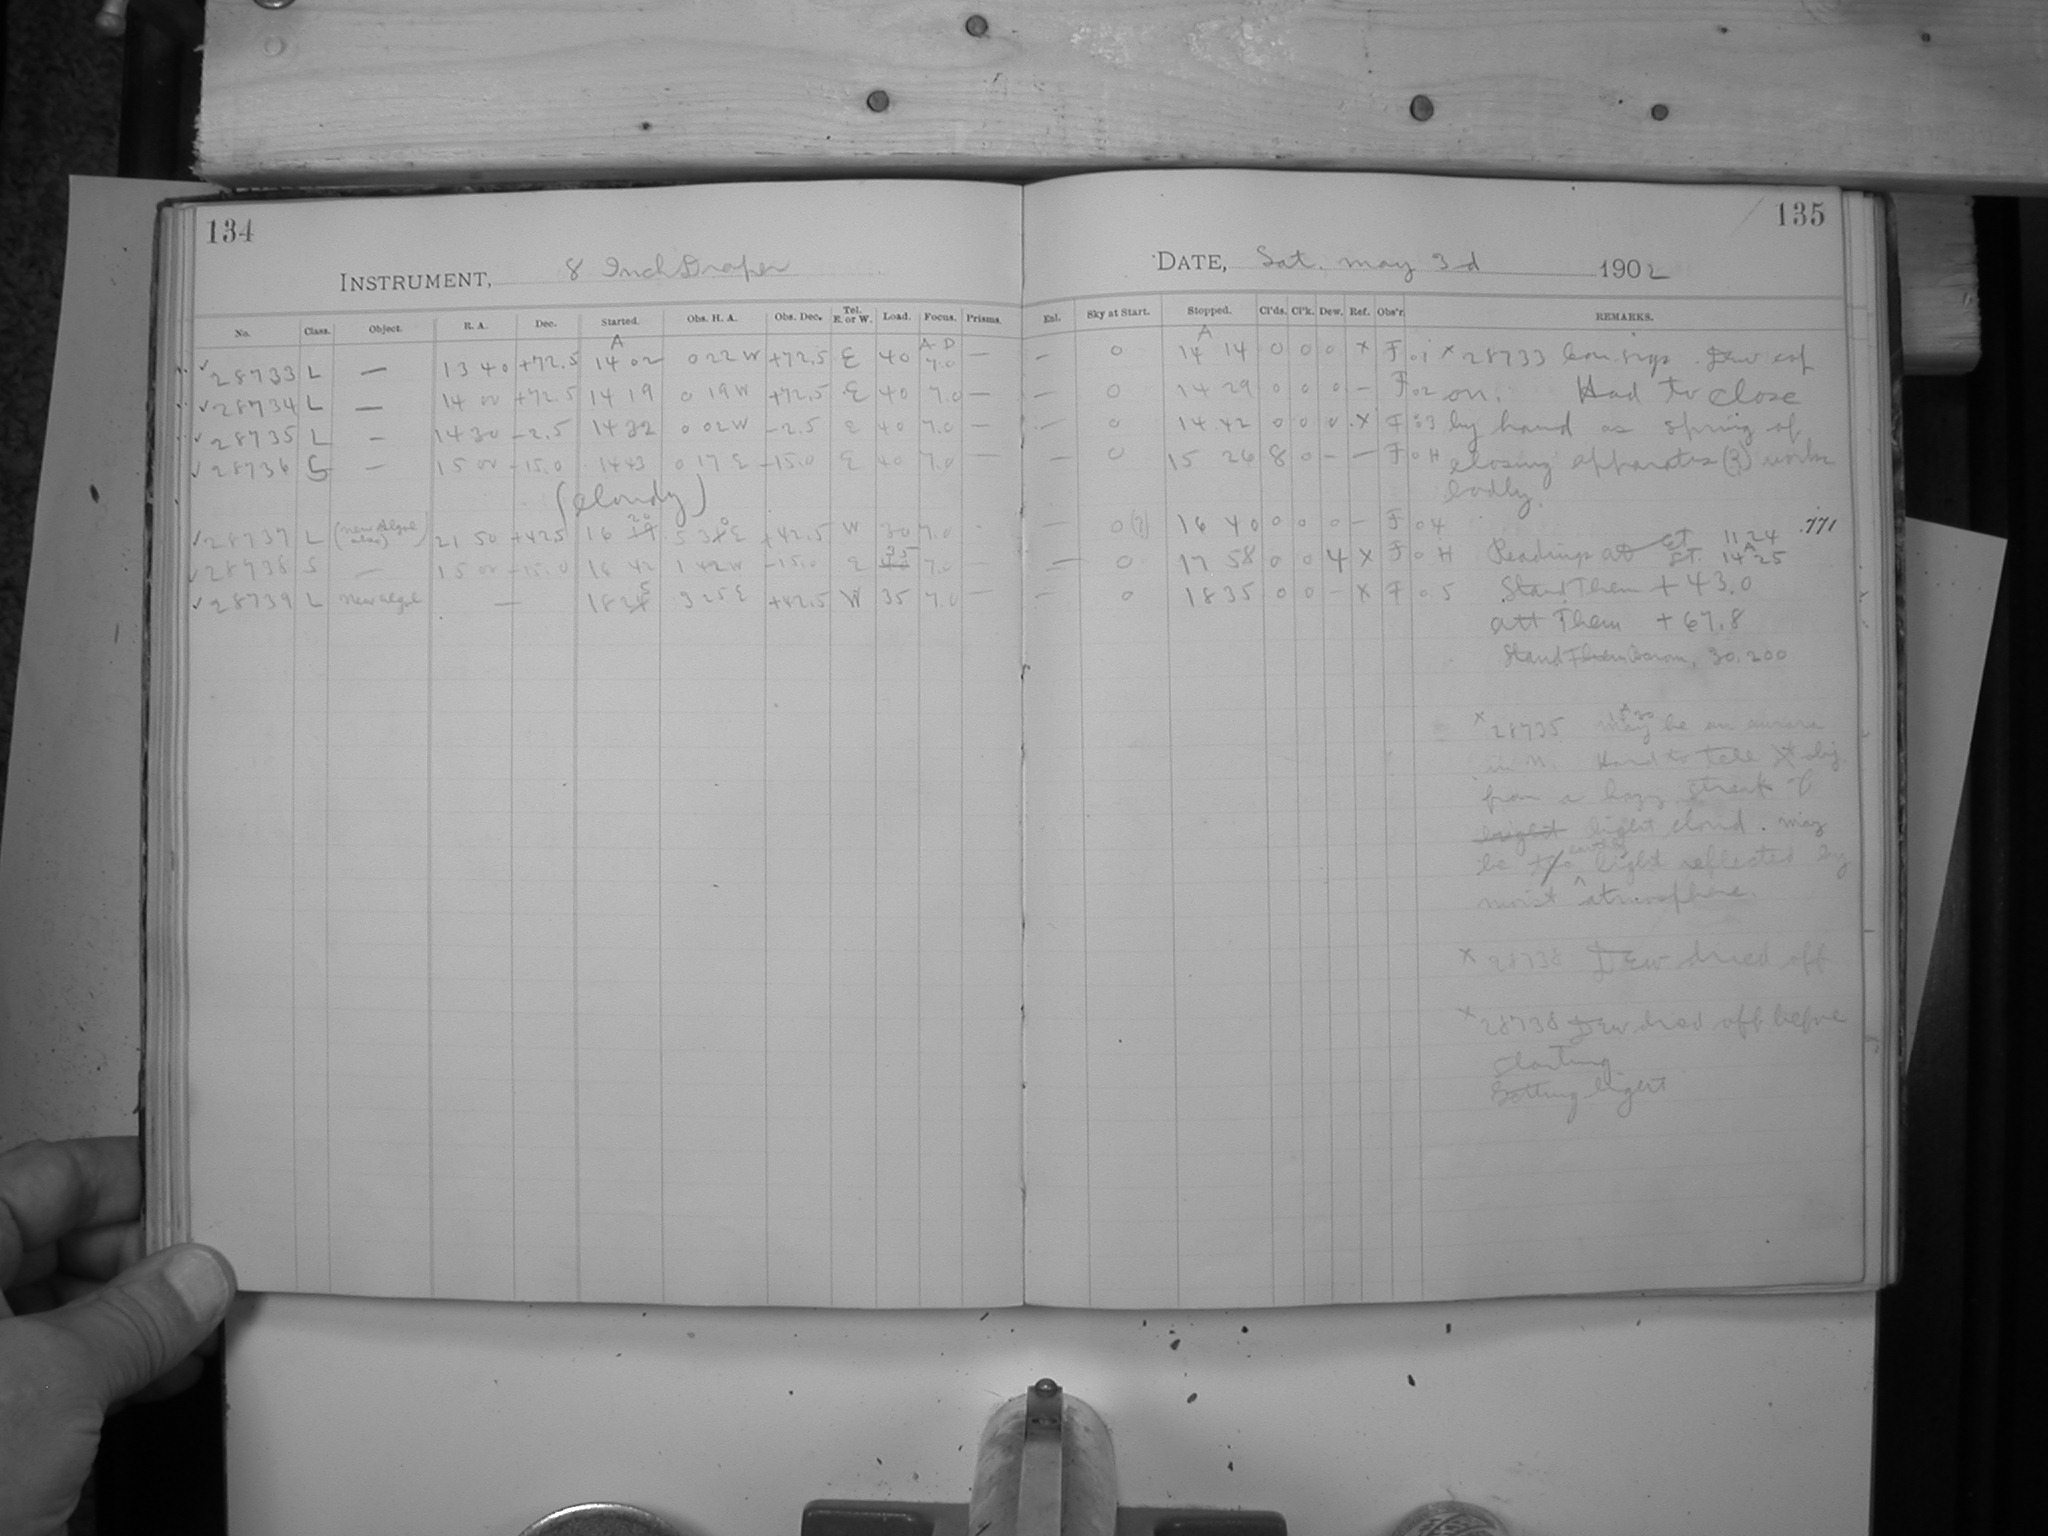 134
INSTRUMENT, 8 Inch Draper
No. Class. Object. R. A. Dec. Started. Obs. H. A. Obs. Dec. Tel. E. or W. Load. Focus. Prisms.
A A D
✓ 28733 L — 13 40 +72.5 14 02 0 22 W +72.5 E 40 7.0 —
✓ 28734 L — 14 00 +72.5 14 19 0 19 W +72.5 E 40 7.0 —
✓ 28735 L — 14 30 –2.5 14 32 0 02 W –2.5 E 40 7.0 —
✓ 28736 S — 15 00 –15.0 14 43 0 17 E –15.0 E 40 7.0 —
(cloudy)
✓ 28737 L (new Algol also) 21 50 +42.5 16 20 5 30 E +42.5 W 30 7.0
✓ 28738 S — 15 00 –15.0 16 42 1 42 W –15.0 E 35 7.0 —
✓ 28739 L new Algol — 18 25 3 25 E +42.5 W 35 7.0 —
135
DATE, Sat. May 3d 1902
Enl. Sky at Start. Stopped. Cl'ds. Cl'k. Dew. Ref. Obs'r. REMARKS.
A
— 0 14 14 0 0 0 x F 01 x 28733 Dew cap
— 0 14 29 0 0 0 – F 02 on. Had to close
— 0 14 42 0 0 0 x F 03 by hand as spring of
— 0 15 26 8 0 – – F 0H closing apparatus (?) works
badly.
— 0(?) 16 40 0 0 0 – F 04
.771
— 0 17 58 0 0 4 x F 0H Readings at ST 11 24
ST. 14 A 25
— 0 18 35 0 0 – x F 05 Stand Them + 43.0
att Them + 67.8
Stand Barom, 30.200
x 28735 may be an aurora
in N. Hard to tell
from a hazy streak of
bright light cloud. may
be light reflected by
moist atmosphere.
x 28738 Dew dried off
x 28738 Dew dried off before
starting.
Getting light